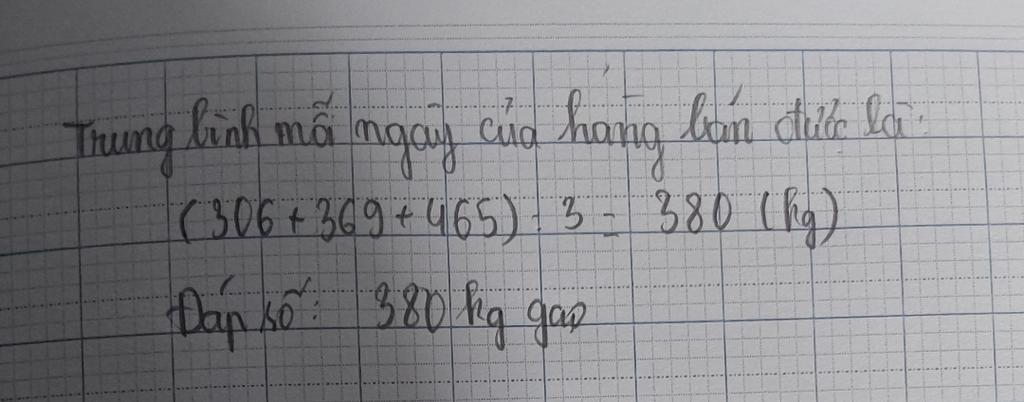 Trung bình mỗi ngày cửa hàng bán được là:
(306 + 369 + 465) : 3 = 380 (kg)
Đáp số: 380 kg gạo